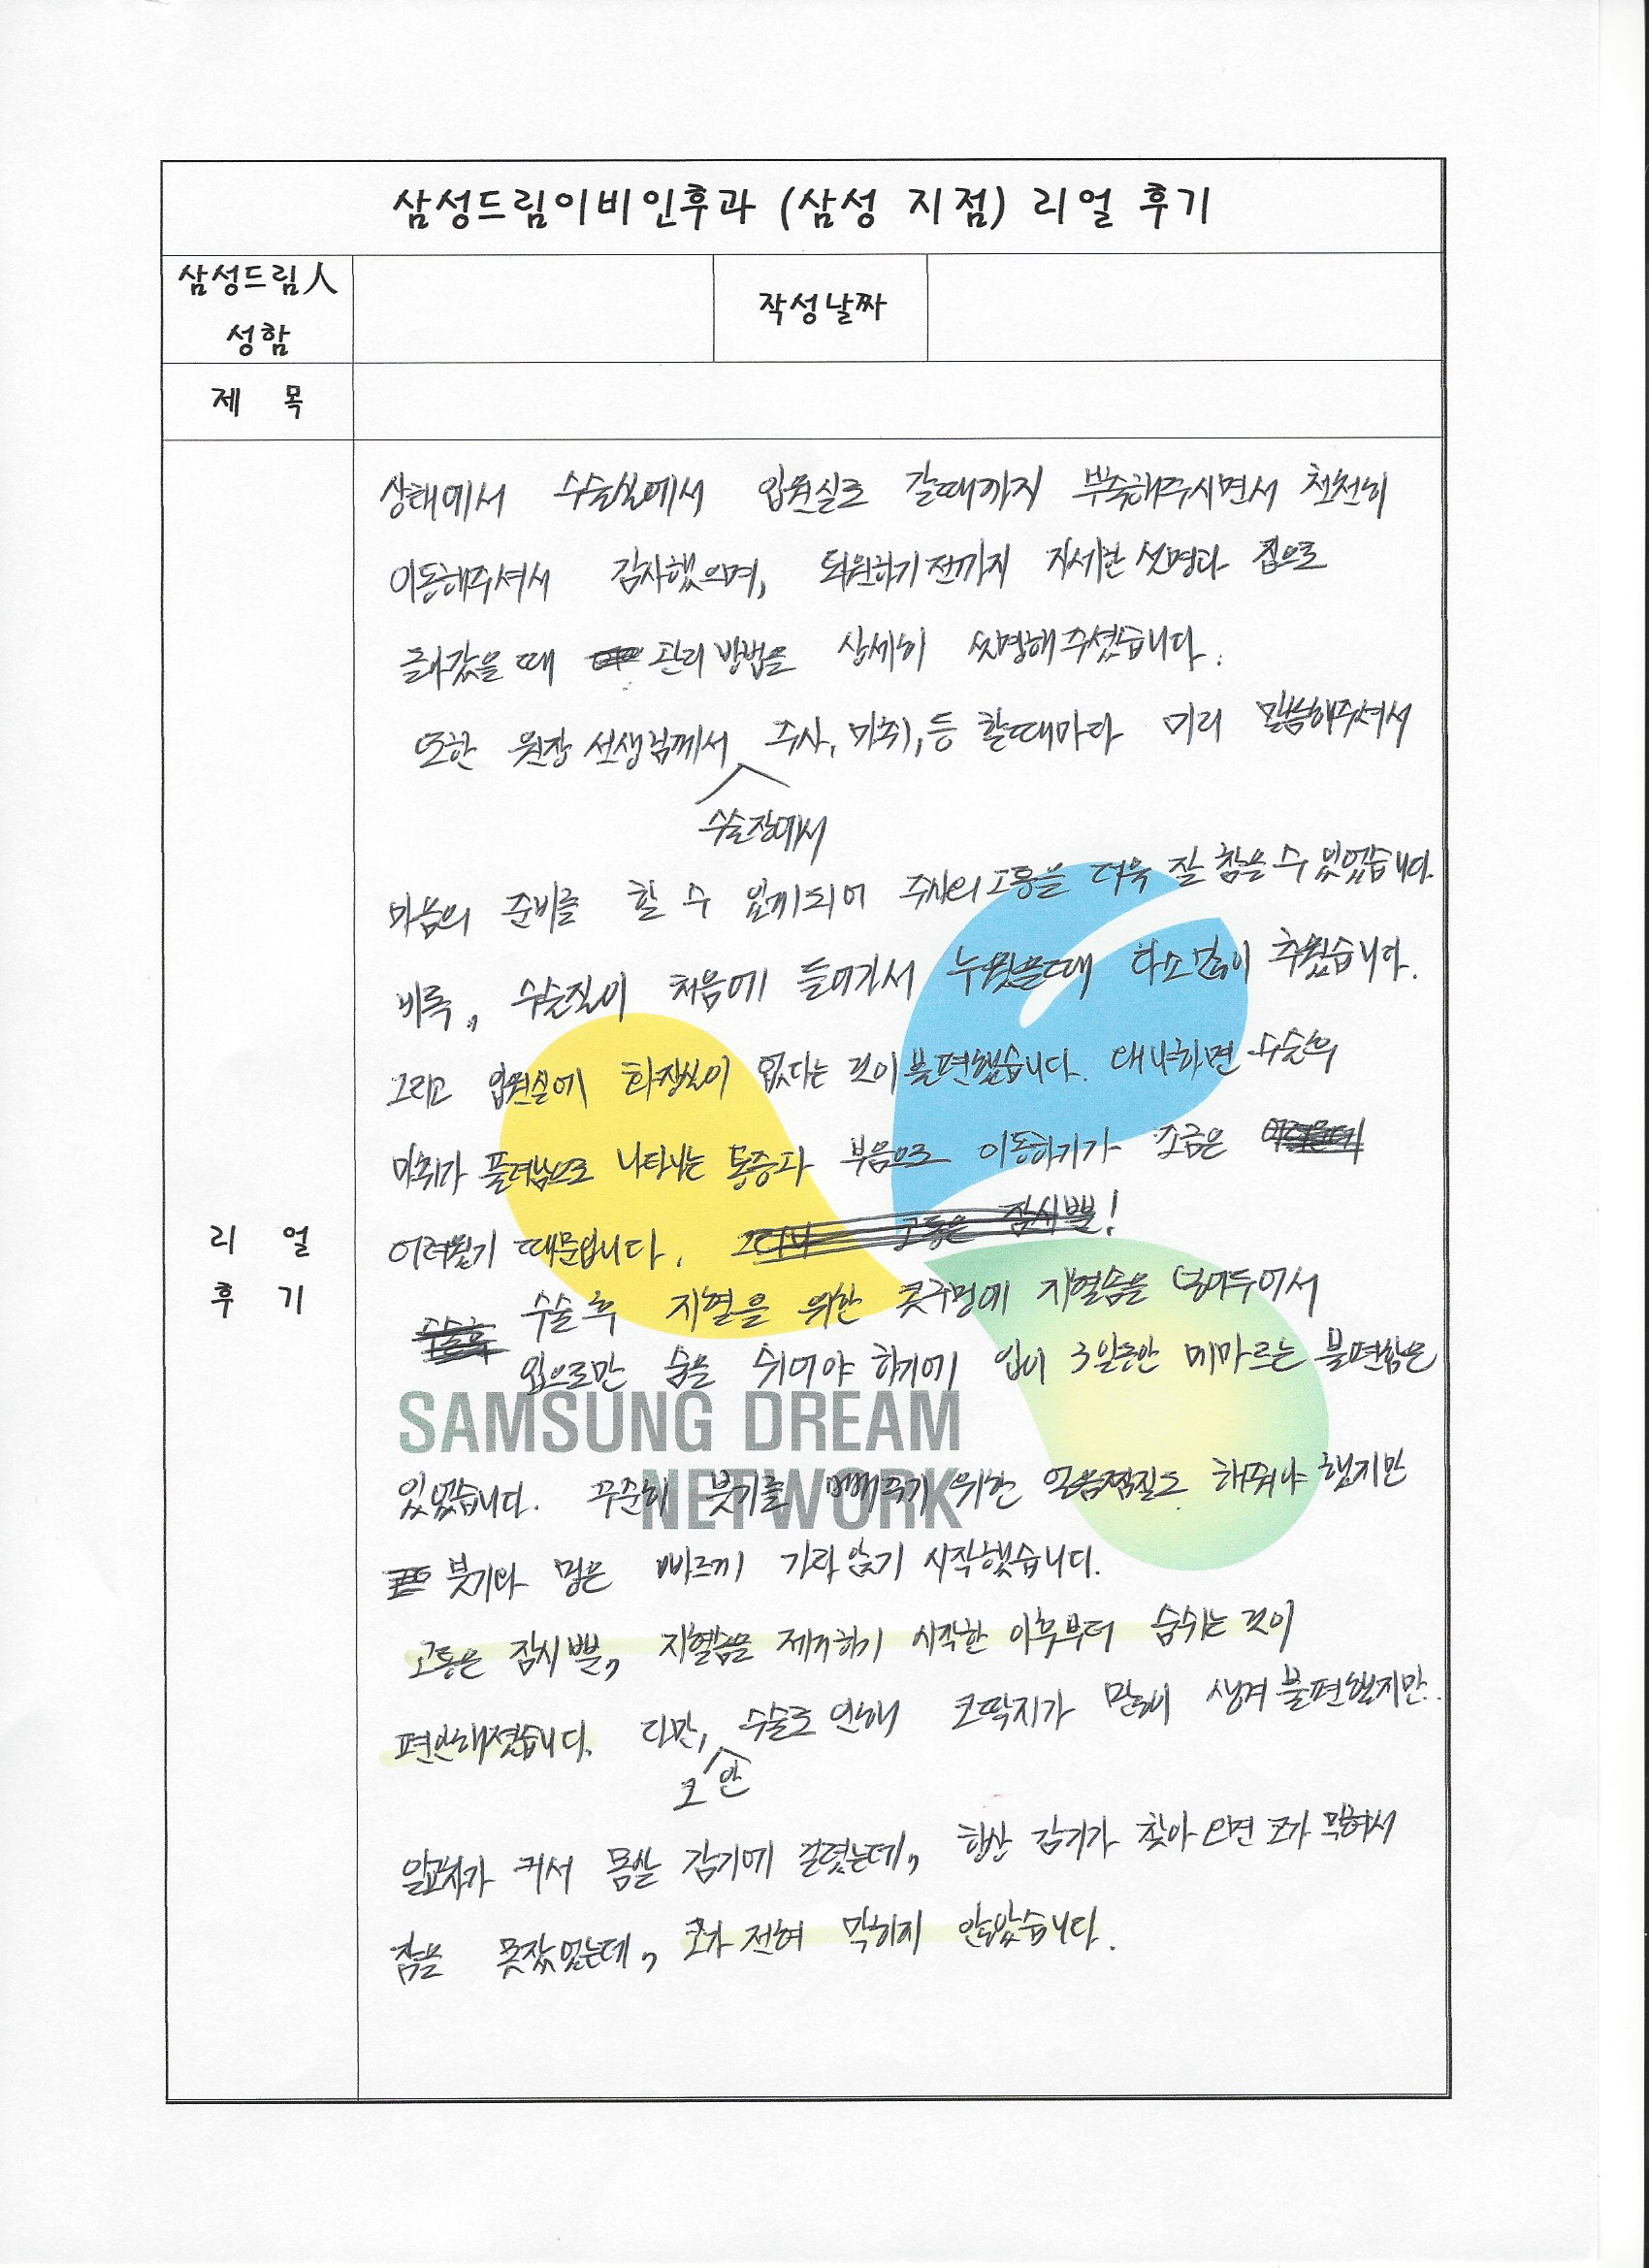 삼성드림이비인후과 (삼성 지점) 리얼 후기
삼성드림人
성함
작성날짜
제 목
리 얼
후 기
상태에서 수술실에서 입원실로 갈때까지 부축해주시면서 천천히
이동해주셔서 감사했으며, 퇴원하기전까지 자세한 설명과 집으로
돌아갔을 때 관리 방법을 상세히 설명해 주셨습니다.
또한 원장 선생님께서 주사, 마취, 등 할때마다 미리 말씀해주셔서
수술장에서
마음의 준비를 할 수 있게되어 주사의 고통을 더욱 잘 참을 수 있었습니다.
비록, 수술실이 처음에 들어가서 누웠을때 다소 많이 추웠습니다.
그리고 입원실에 화장실이 없다는 것이 불편했습니다. 왜냐하면 수술의
마취가 풀려남으로 나타나는 통증과 부음으로 이동하기가 조금은
어려웠기 때문입니다. 그러나 고통은 잠시뿐!
수술후 수술 후 지혈을 위한 콧구멍에 지혈솜을 넣어두어서
입으로만 숨을 쉬어야 하기에 입이 3일동안 메마르는 불편함은
SAMSUNG DREAM
NETWORK
있었습니다. 꾸준히 붓기를 빼주기 위한 얼음찜질도 해줘야 했지만
붓기와 멍은 빠르게 가라 앉기 시작했습니다.
고통은 잠시 뿐, 지혈솜을 제거하기 시작한 이후부터 숨쉬는 것이
편안해졌습니다. 다만, 수술로 인해 코딱지가 많이 생겨 불편했지만..
코 안
일교차가 커서 몸살 감기에 걸렸는데, 항상 감기가 찾아오면 코가 막혀서
잠을 못잤었는데, 코가 전혀 막히지 않았습니다.